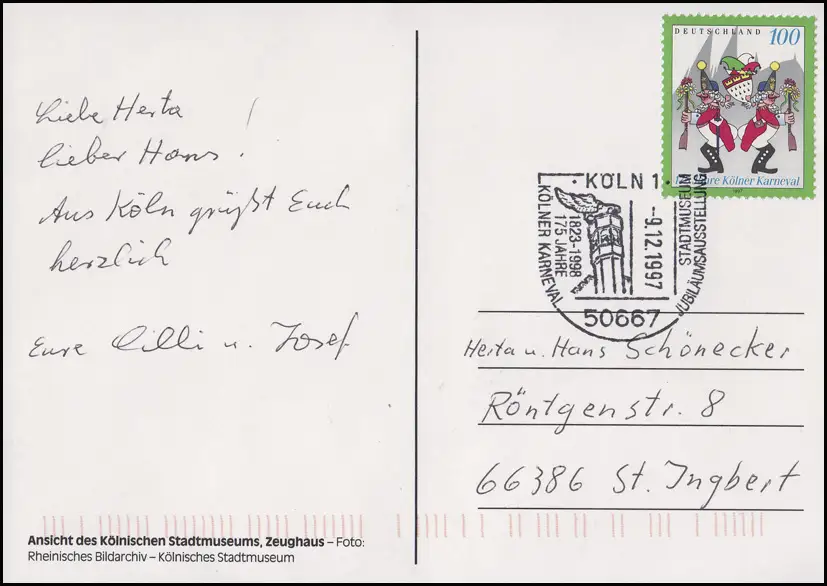 Liebe Herta
lieber Hans!
Aus Köln grüßt Euch
herzlich
Eure Cilli u. Josef
Ansicht des Kölnischen Stadtmuseums, Zeughaus – Foto:
Rheinisches Bildarchiv – Kölnisches Stadtmuseum
DEUTSCHLAND 100
Kölner Karneval
1997
KÖLN 1
KÖLNER KARNEVAL
175 JAHRE
1823-1998
-9.12.1997
STADTMUSEUM
JUBILÄUMSAUSSTELLUNG
50667
Herta u. Hans Schönecker
Röntgenstr. 8
66386 St. Ingbert